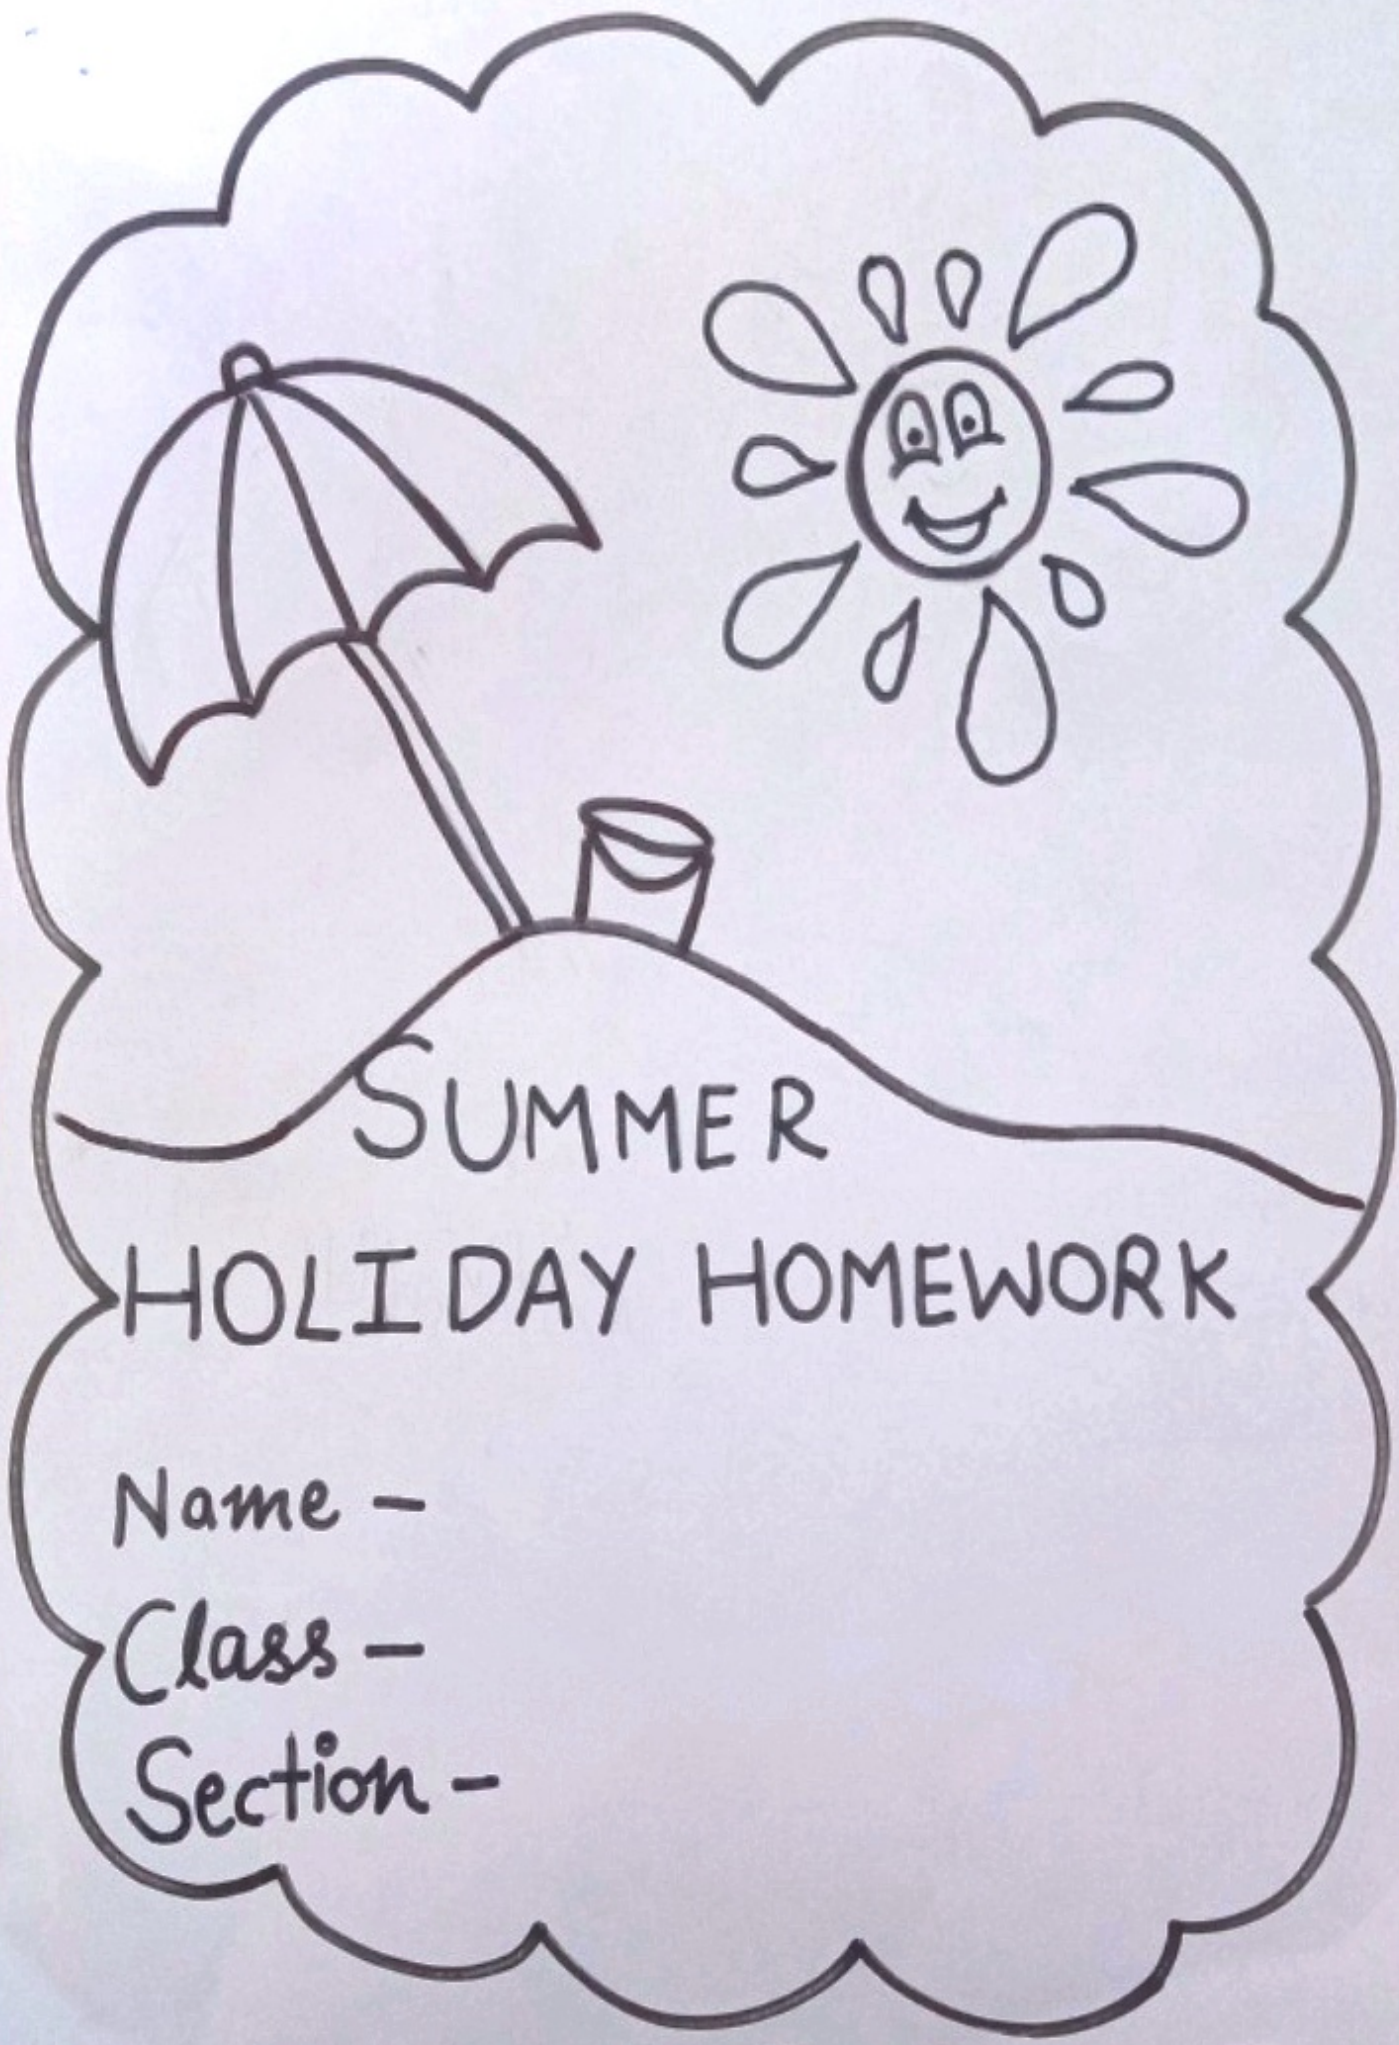 SUMMER
HOLIDAY HOMEWORK
Name -
Class -
Section -